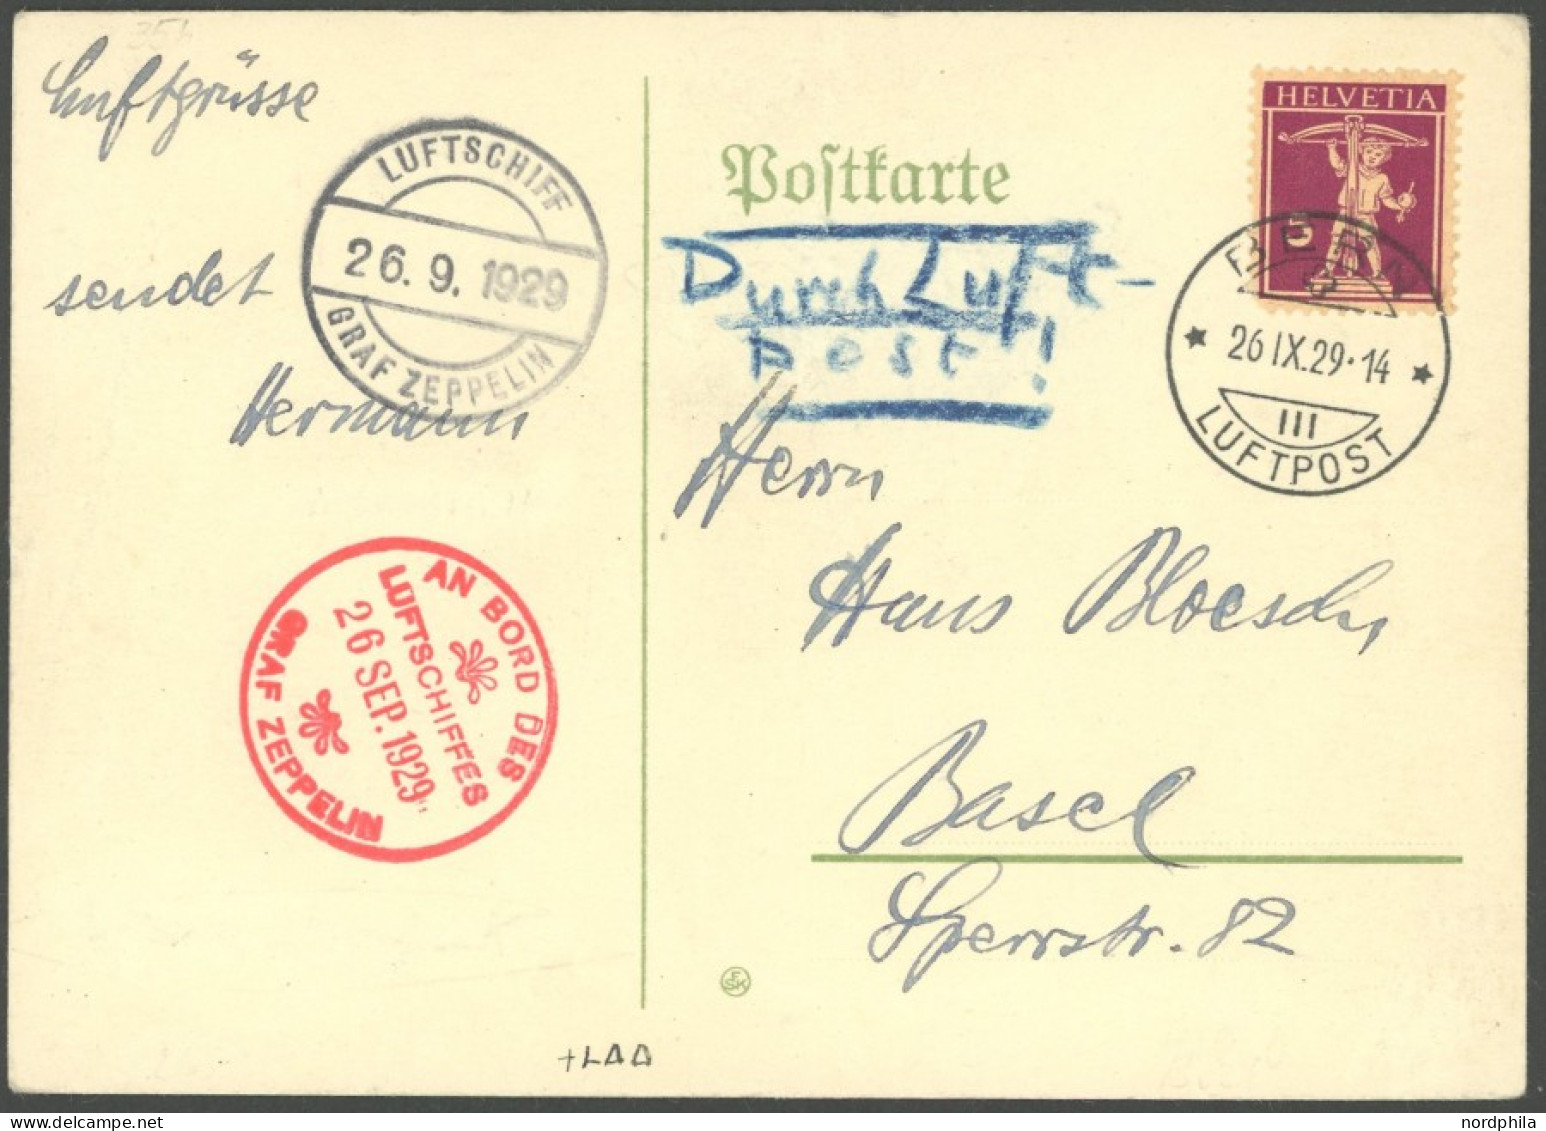 Luftgrüsse
sendet
Hermann
LUFTSCHIFF
26.9.1929
GRAF ZEPPELIN
AN BORD DES
LUFTSCHIFFES
26 SEP. 1929
GRAF ZEPPELIN
Postkarte
Durch Luft-
post!
HELVETIA
5
BERN
26 IX.29·14
III
LUFTPOST
Herrn
Hans Bloesch,
Basel
Sperrstr. 82
FSK
+LΔΔ
www.nordphila.de